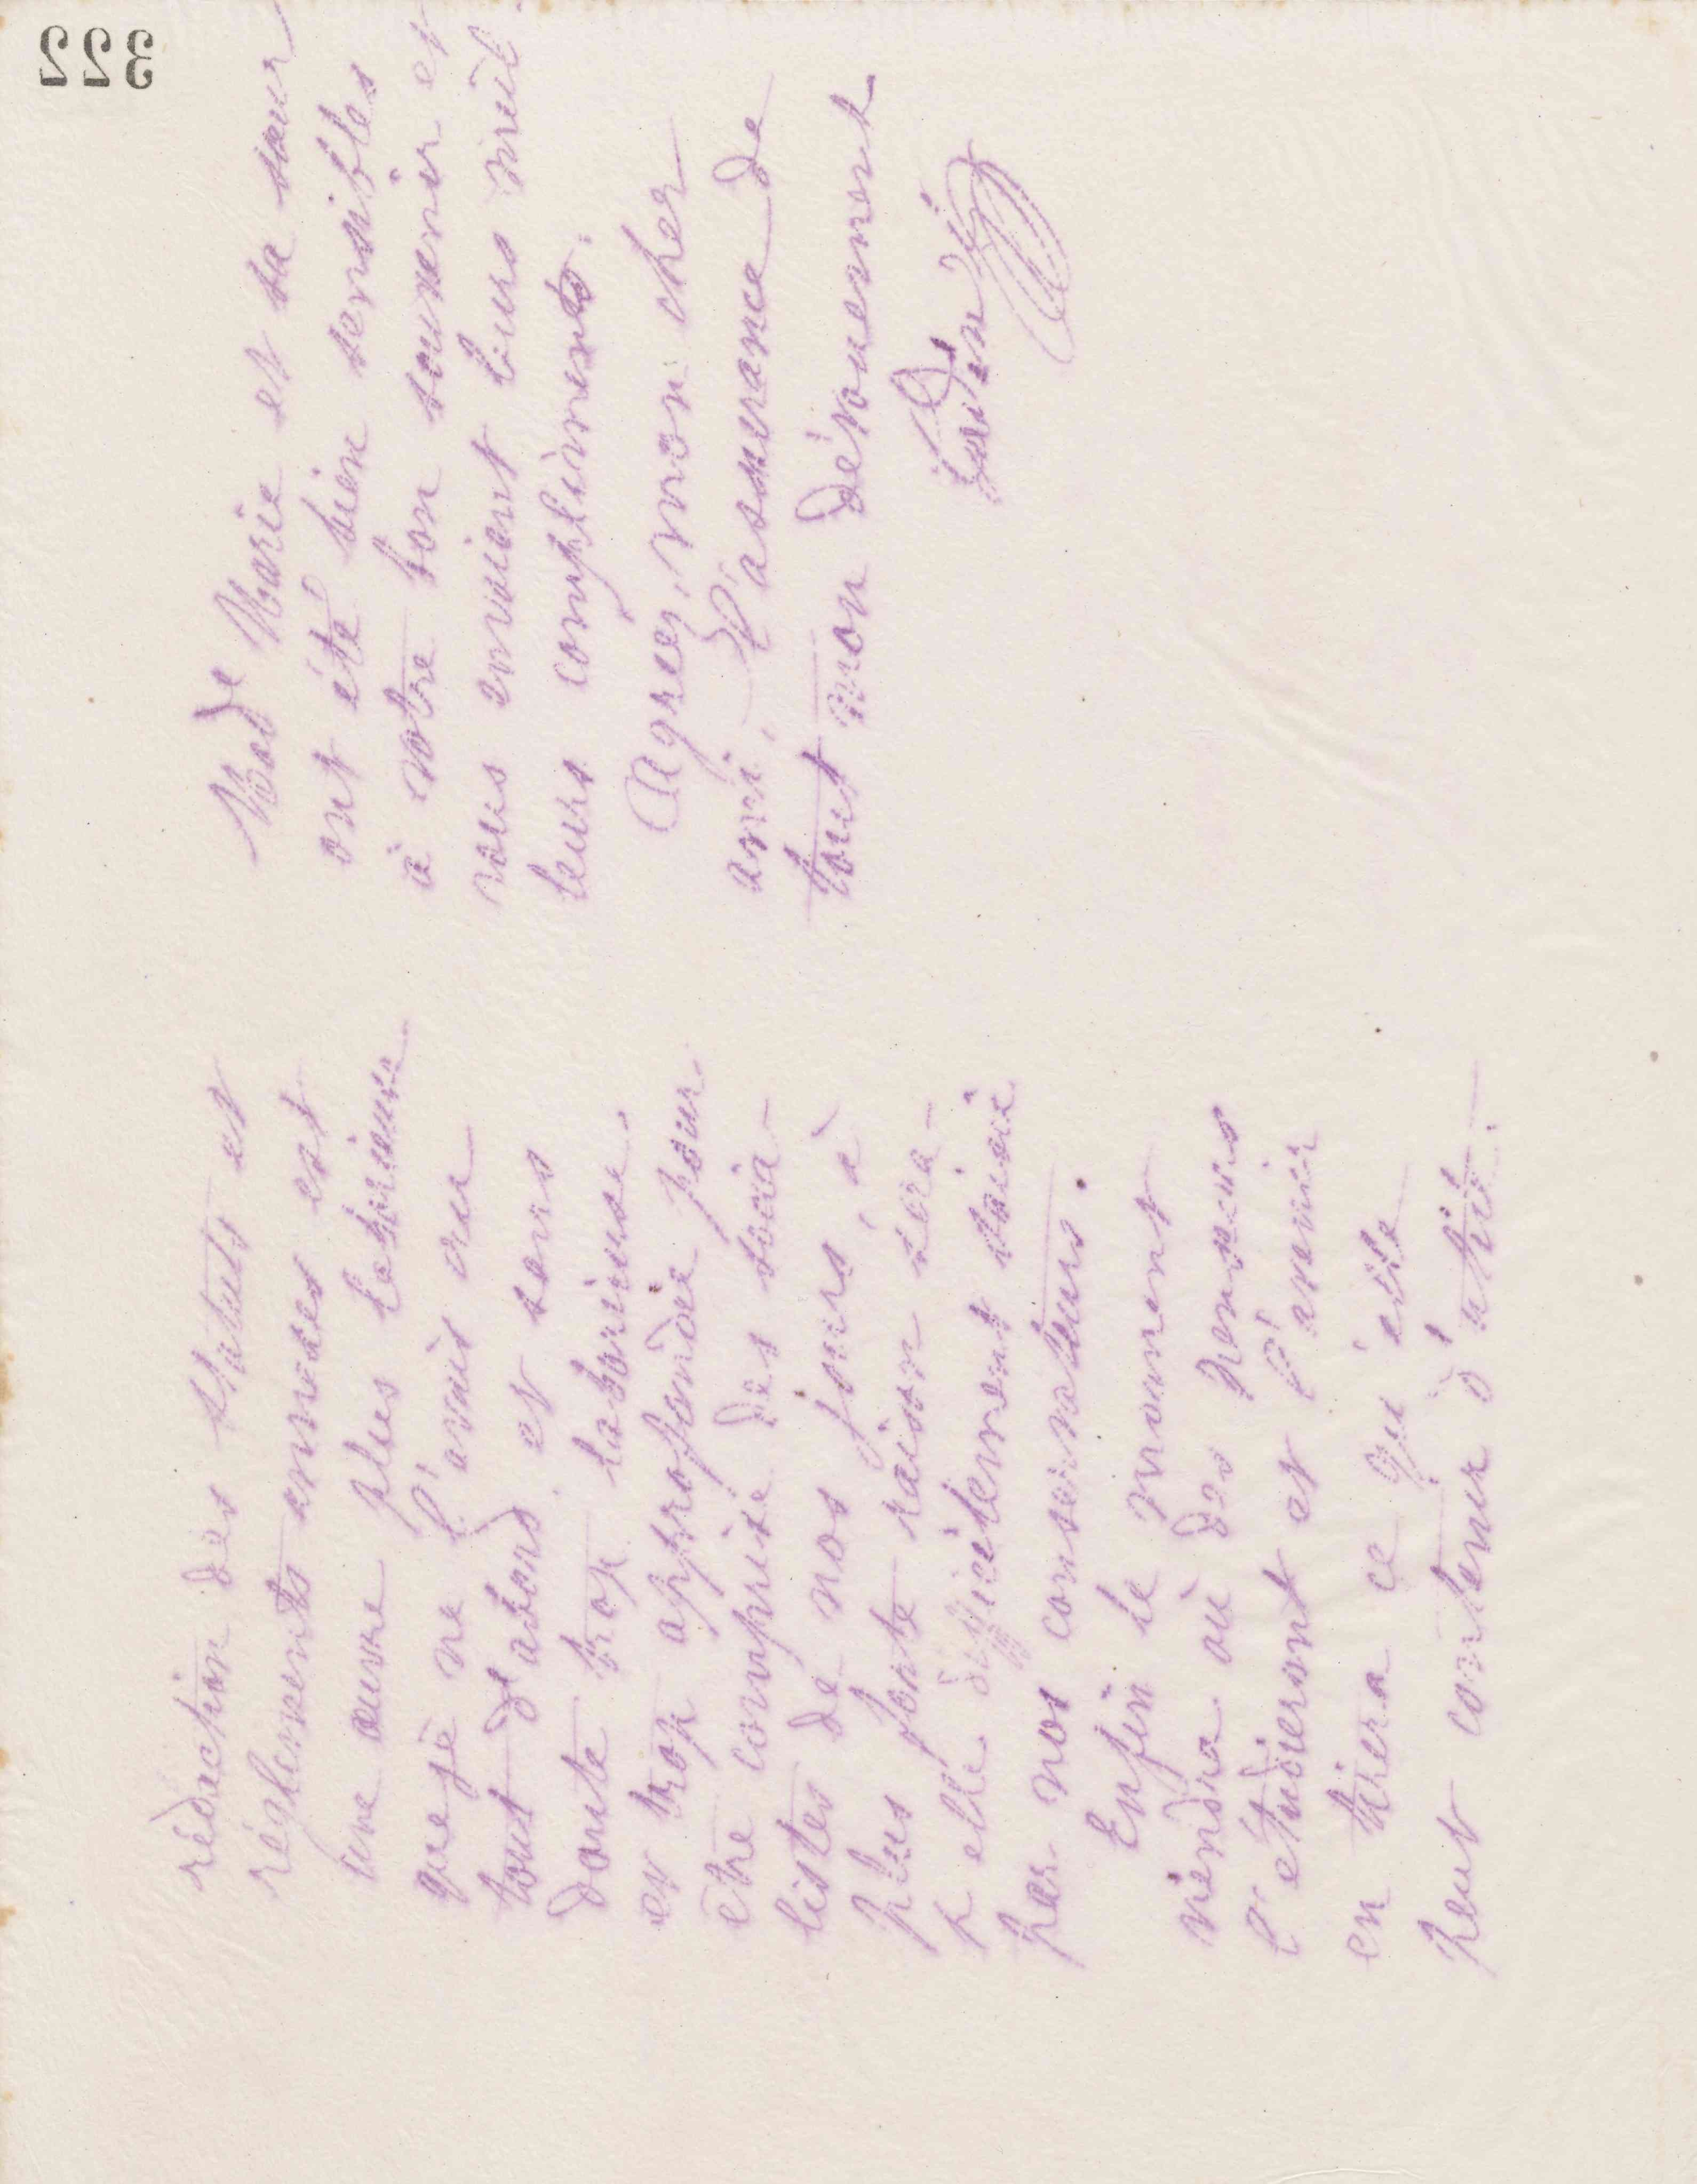 322
rédaction des statuts et
règlements annexes est
une œuvre plus laborieuse
que je ne l'avais cru
tout d'abord, et sans
doute trop laborieuse
et trop approfondie pour
être comprise des socia-
listes de nos jours, à
plus forte raison sera-
t elle difficilement saisie
par nos conservateurs.
Enfin le moment
viendra où des penseurs
l'étudieront et l'avenir
en tirera ce qu'elle
peut contenir d'utile.
Made Marie et sa sœur
ont été bien sensibles
à votre bon souvenir et
vous envoient leurs meil
leurs compliments.
Agréez, mon cher
ami, l'assurance de
tout mon dévouement
Godin